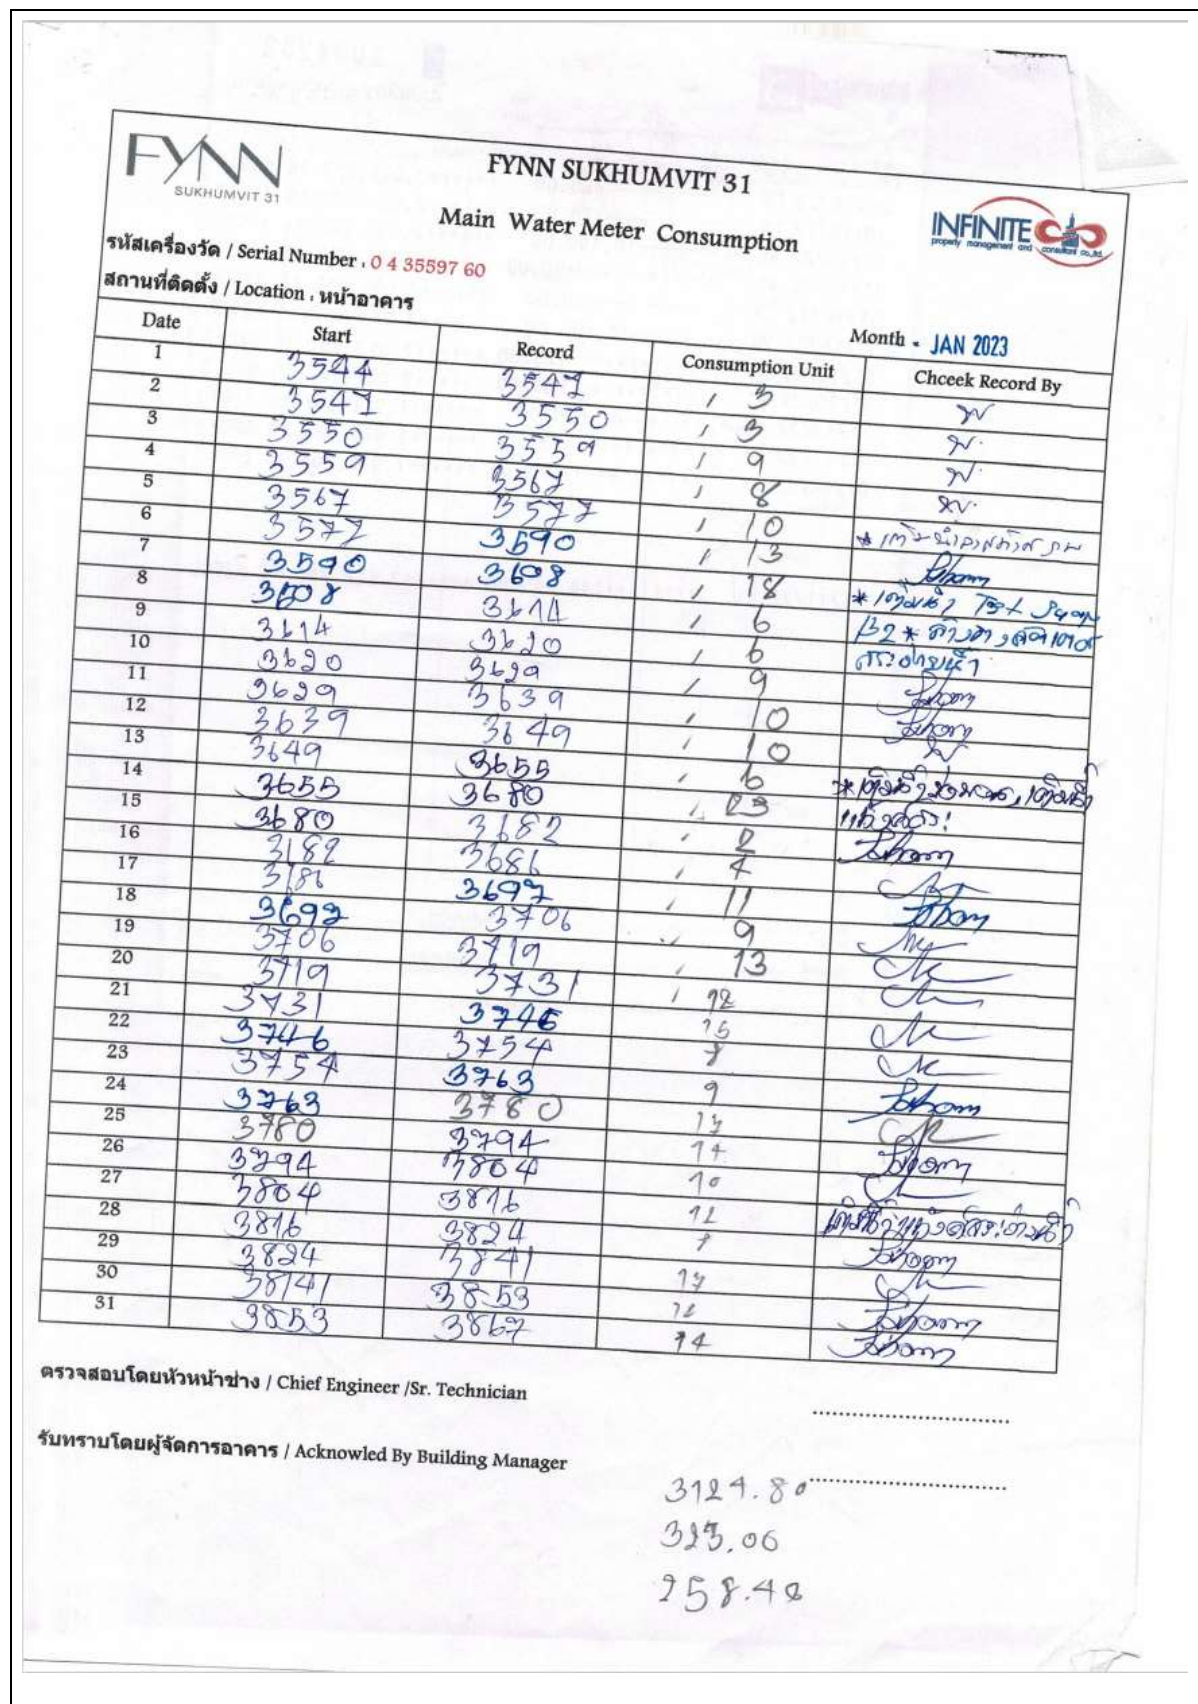 FYNN
SUKHUMVIT 31
FYNN SUKHUMVIT 31
Main Water Meter Consumption
INFINITE
property management and consultant co.,ltd.
รหัสเครื่องวัด / Serial Number : 0 4 35597 60
สถานที่ติดตั้ง / Location : หน้าอาคาร
Month - JAN 2023
Date Start Record Consumption Unit Chceek Record By
1 3544 3547 3
2 3547 3550 3
3 3550 3559 9
4 3559 3567 8
5 3567 3577 10
6 3577 3590 13
7 3590 3608 18
8 3608 3614 6
9 3614 3620 6
10 3620 3629 9
11 3629 3639 10
12 3639 3649 10
13 3649 3655 6
14 3655 3680 23
15 3680 3682 2
16 3182 3686 4
17 3186 3697 11
18 3697 3706 9
19 3706 3719 13
20 3719 3731 12
21 3731 3746 15
22 3746 3754 8
23 3754 3763 9
24 3763 3780 17
25 3780 3794 14
26 3794 3804 10
27 3804 3816 12
28 3816 3824 8
29 3824 3841 17
30 3841 3853 12
31 3853 3867 14
ตรวจสอบโดยหัวหน้าช่าง / Chief Engineer /Sr. Technician
รับทราบโดยผู้จัดการอาคาร / Acknowled By Building Manager
3124.80
323.06
258.48